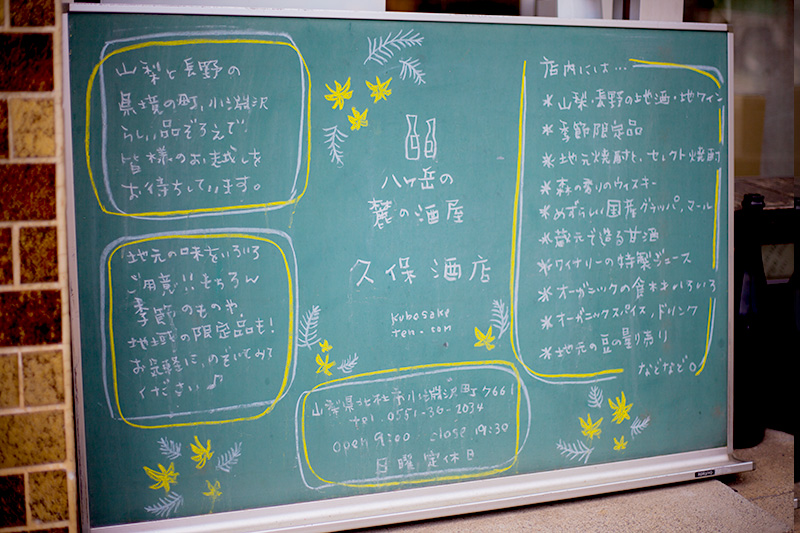 山梨と長野の
県境の町、小淵沢
らしい品ぞろえで
皆様のお越しを
お待ちしています。
地元の味をいろいろ
ご用意!!もちろん
季節のものや、
地域の限定品も!
お気軽に、のぞいてみて
ください♪
八ヶ岳の
麓の酒屋
久保酒店
kubosake
ten.com
山梨県北杜市小淵沢町7661
tel.0551-36-2034
open 9:00 close 19:30
日曜定休日
店内には…
*山梨・長野の地酒・地ワイン
*季節限定品
*地元焼酎と、セレクト焼酎
*森の香りのウィスキー
*めずらしい国産グラッパ、マール
*蔵元で造る甘酒
*ワイナリーの特製ジュース
*オーガニックの食材いろいろ
*オーガニックスパイス、ドリンク
*地元の豆の量り売り
などなど。